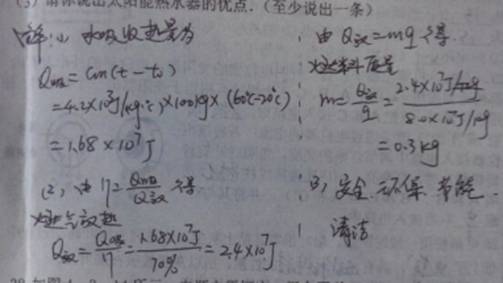 (3) 请你说出太阳能热水器的优点.(至少说出一条)
解:(1) 水吸收热量为
Q吸=cm(t-t₀)
=4.2×10³J/(kg·℃)×100kg×(60℃-20℃)
=1.68×10⁷J
(2) 由η=Q吸/Q放 得
燃气放热
Q放=Q吸/η=1.68×10⁷J/70%=2.4×10⁷J
由Q放=mq 得.
燃料质量
m=Q放/q=2.4×10⁷J/8.0×10⁷J/kg
=0.3kg
(3) 安全 环保 节能
清洁